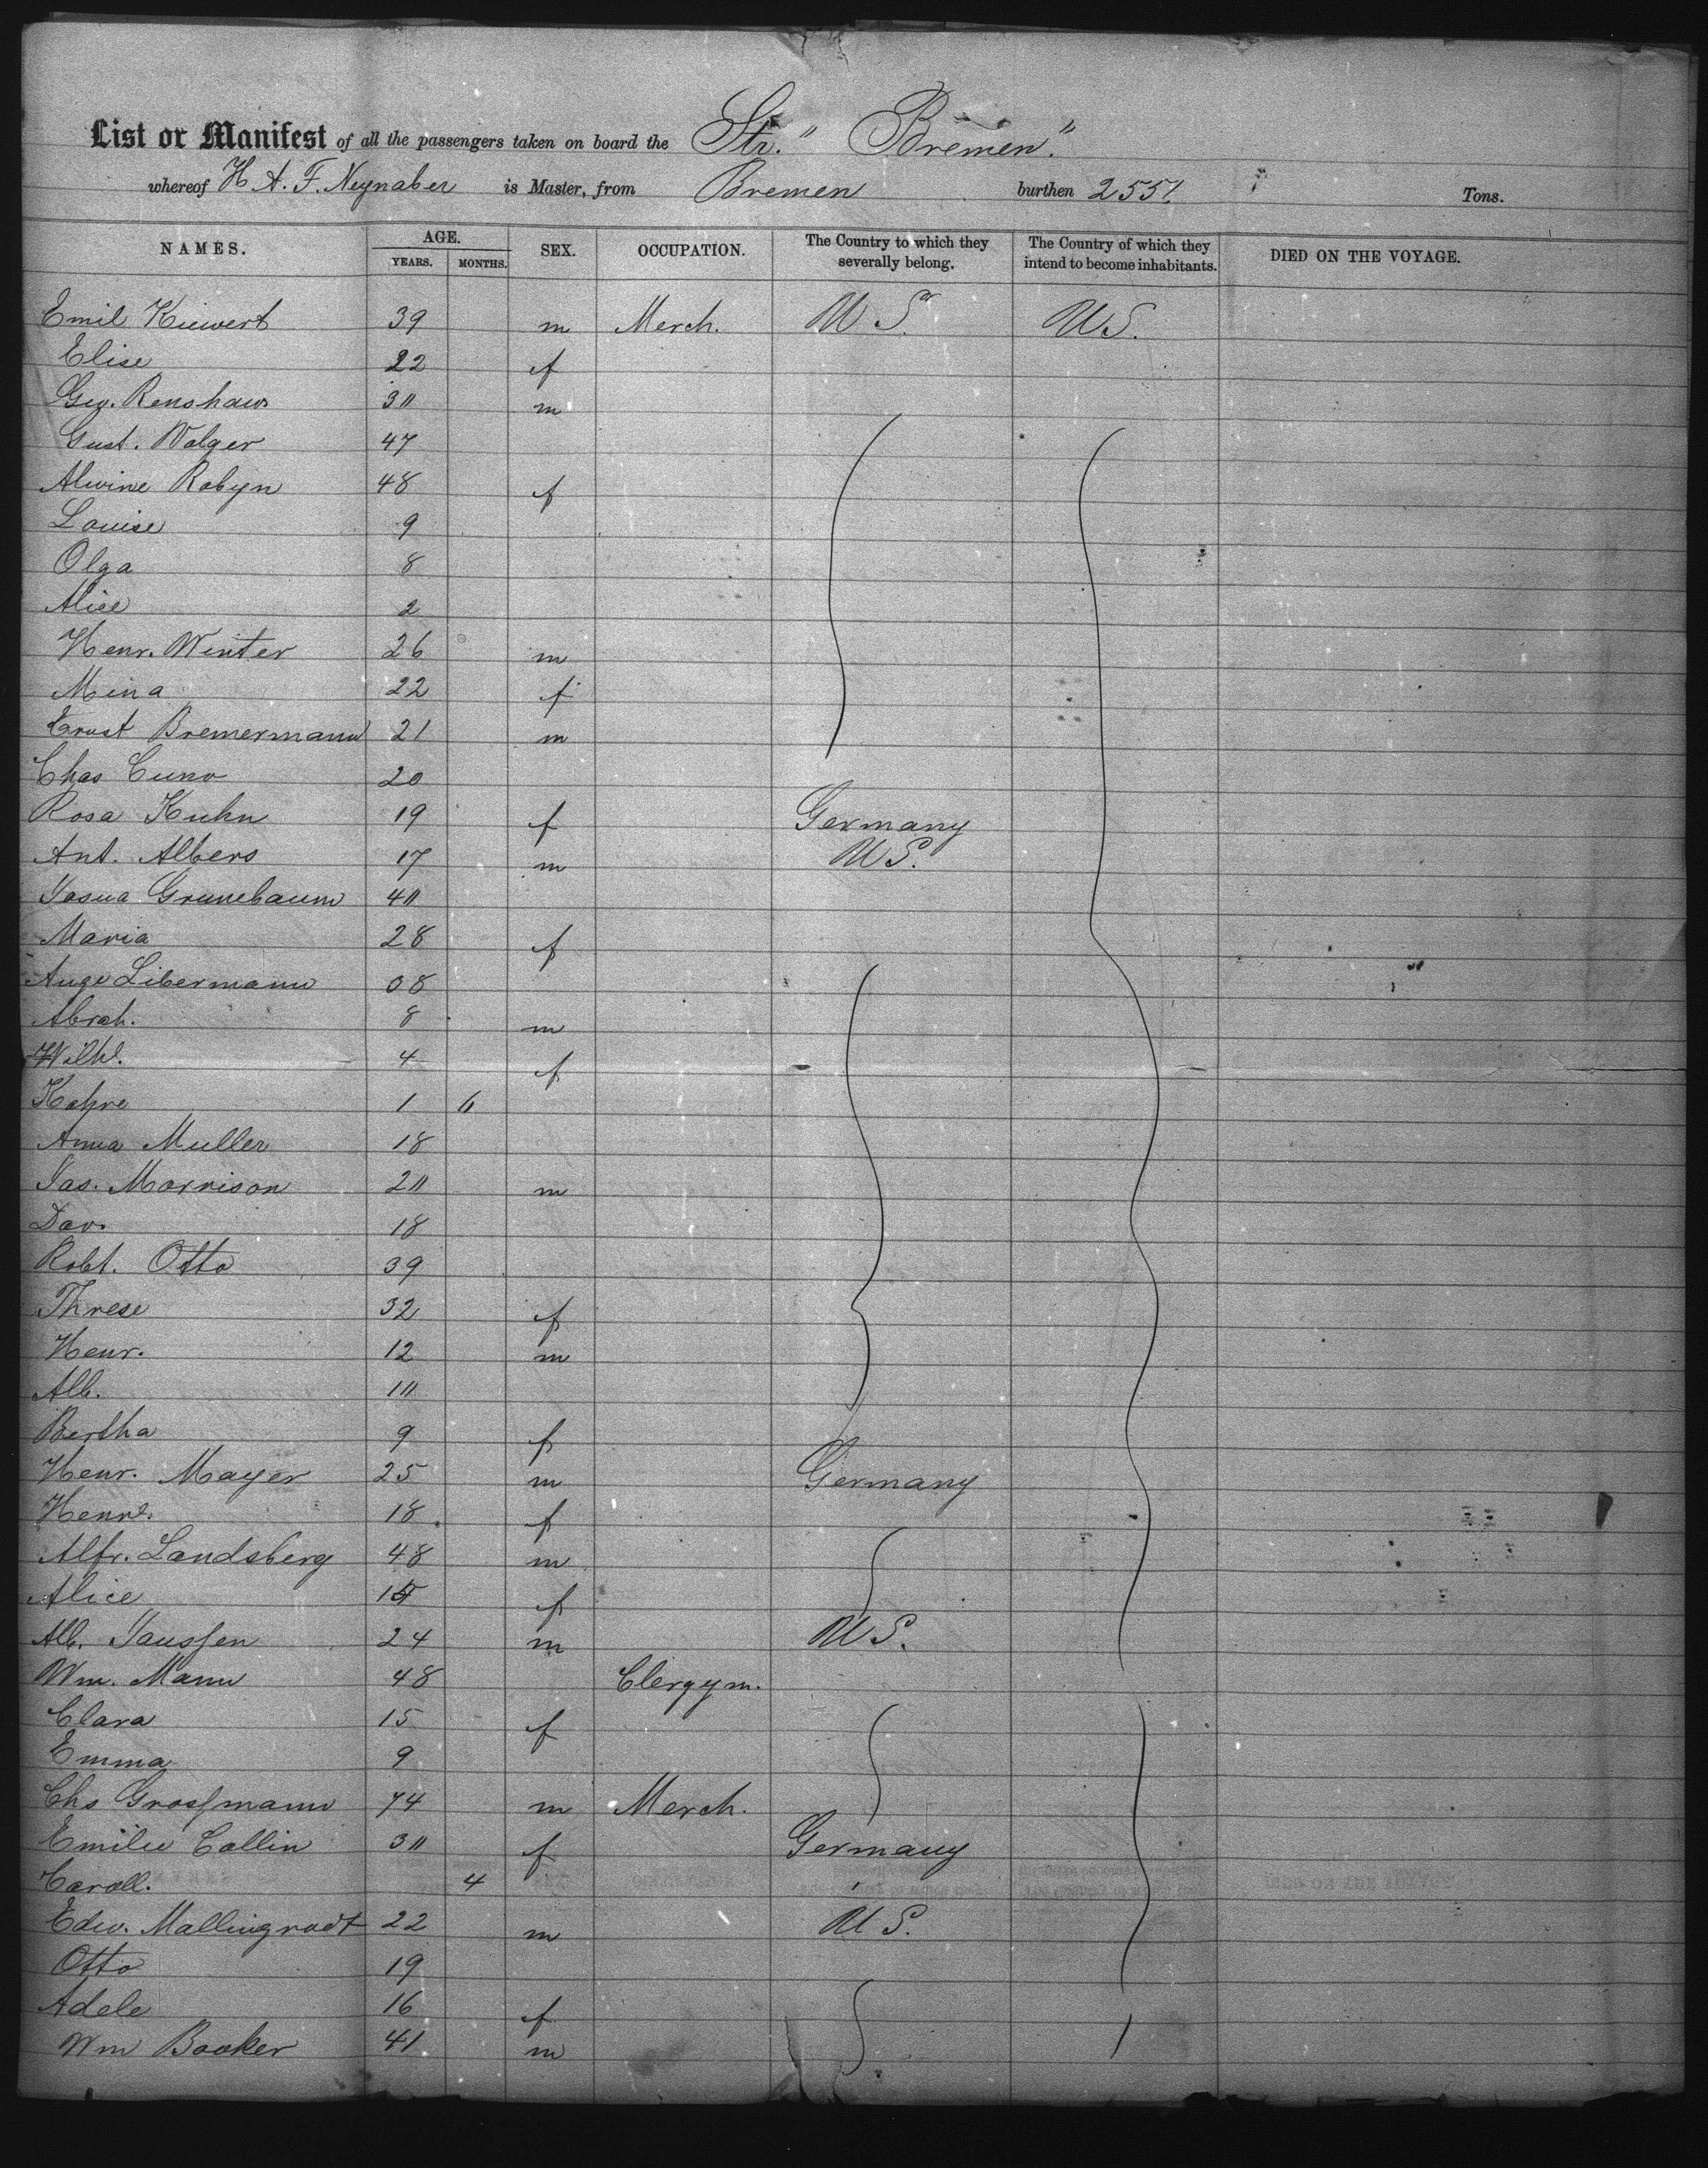 List or Manifest of all the passengers taken on board the Str. "Bremen"
whereof H. A. F. Neynaber is Master, from Bremen burthen 2551 Tons.
NAMES. AGE. YEARS. MONTHS. SEX. OCCUPATION. The Country to which they severally belong. The Country of which they intend to become inhabitants. DIED ON THE VOYAGE.
Emil Kiewert 39 m Merch. U S. U S.
Elise 22 f
Geo. Renshaw 30 m
Gust. Wolger 47
Alwine Robyn 48 f
Louise 9
Olga 8
Alice 2
Henr. Winter 26 m
Mina 22 f
Ernst Bremermann 21 m
Chas Cuno 20
Rosa Kuhn 19 f Germany
Ant. Albers 17 m U S.
Josua Grunebaum 40
Maria 28 f
Auge Libermann 38
Abrah. 8 m
Wilh. 4 f
1 6
Anna Muller 18
Jas. Morrison 20 m
Dav. 18
Robt. Otto 39
Threse 32 f
Henr. 12 m
Alb. 10
Bertha 9 f
Henr. Mayer 25 m Germany
Henre. 18 f
Alfr. Landsberg 48 m
Alice f
Alb. Janssen 24 m U S.
Wm. Mann 48 Clergym.
Clara 15 f
Emma 9
Chs Grossmann 74 m Merch.
Emilie Collin 30 f Germany
Caroll. 4
Edw. Mallingrodt 22 m U S.
Otto 19
Adele 16 f
Wm Booker 41 m